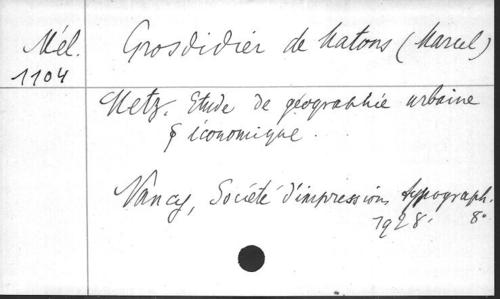 Mél.
1104
Grosdidier de Matons (Marcel)
Metz. Etude de géographie urbaine
& économique.
Nancy, Société d'impressions typograph.
1928. 8°